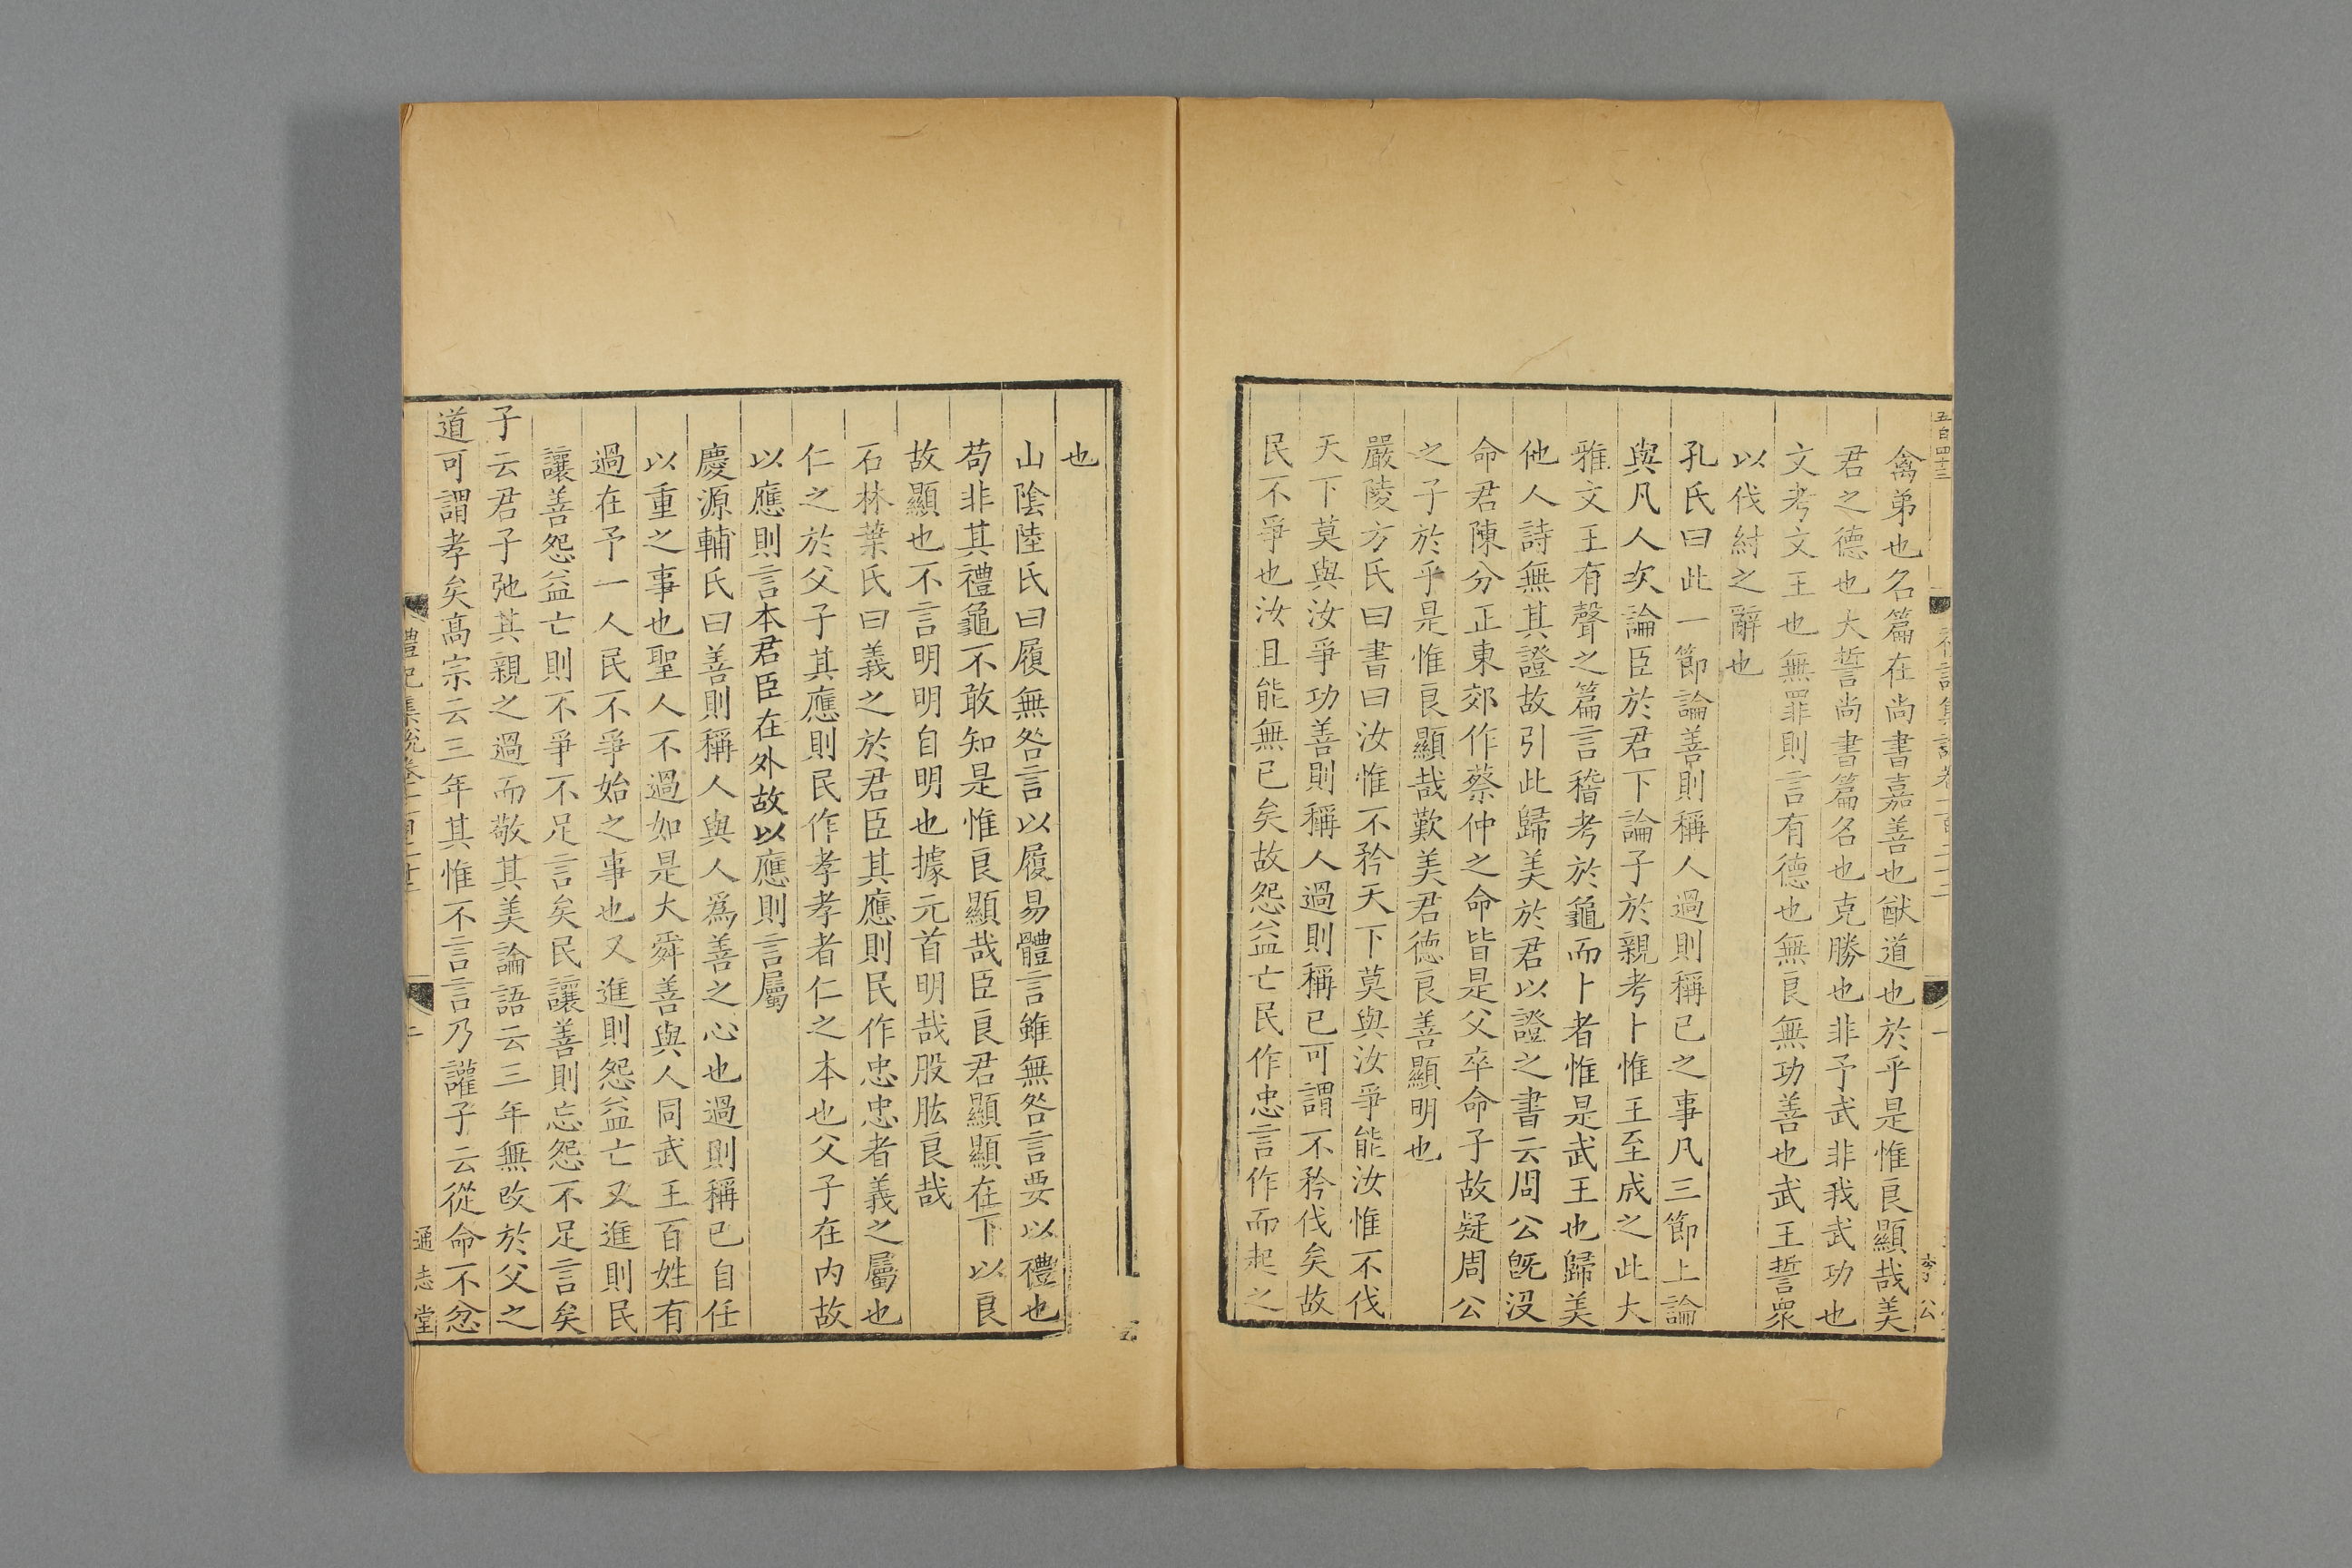 五百四十三
禽弟也名篇在尚書嘉善也猷道也於乎是惟良顯哉美
君之德也大誓尚書篇名也克勝也非予武非我武功也
文考文王也無罪則言有德也無良無功善也武王誓眾
以伐紂之辭也
孔氏曰此一節論善則稱人過則稱已之事凡三節上論
與凡人次論臣於君下論子於親考卜惟王至成之此大
雅文王有聲之篇言稽考於龜而卜者惟是武王也歸美
他人詩無其證故引此歸美於君以證之書云周公旣没
命君陳分正東郊作蔡仲之命皆是父卒命子故疑周公
之子於乎是惟良顯哉歎美君德良善顯明也
嚴陵方氏曰書曰汝惟不矜天下莫與汝爭能汝惟不伐
天下莫與汝爭功善則稱人過則稱已可謂不矜伐矣故
民不爭也汝且能無已矣故怨益亡民作忠言作而起之
也
山陰陸氏曰履無咎言以履易體言雖無咎言要以禮也
苟非其禮龜不敢知是惟良顯哉臣良君顯顯在下以良
故顯也不言明明自明也據元首明哉股肱良哉
石林葉氏曰義之於君臣其應則民作忠忠者義之屬也
仁之於父子其應則民作孝孝者仁之本也父子在内故
以應則言本君臣在外故以應則言屬
慶源輔氏曰善則稱人與人爲善之心也過則稱已自任
以重之事也聖人不過如是大舜善與人同武王百姓有
過在予一人民不爭始之事也又進則怨益亡又進則民
讓善怨益亡則不爭不足言矣民讓善則忘怨不足言矣
子云君子弛其親之過而敬其美論語云三年無改於父之
道可謂孝矣高宗云三年其惟不言言乃讙子云從命不忿
禮記集說卷一百二十二
二
通志堂